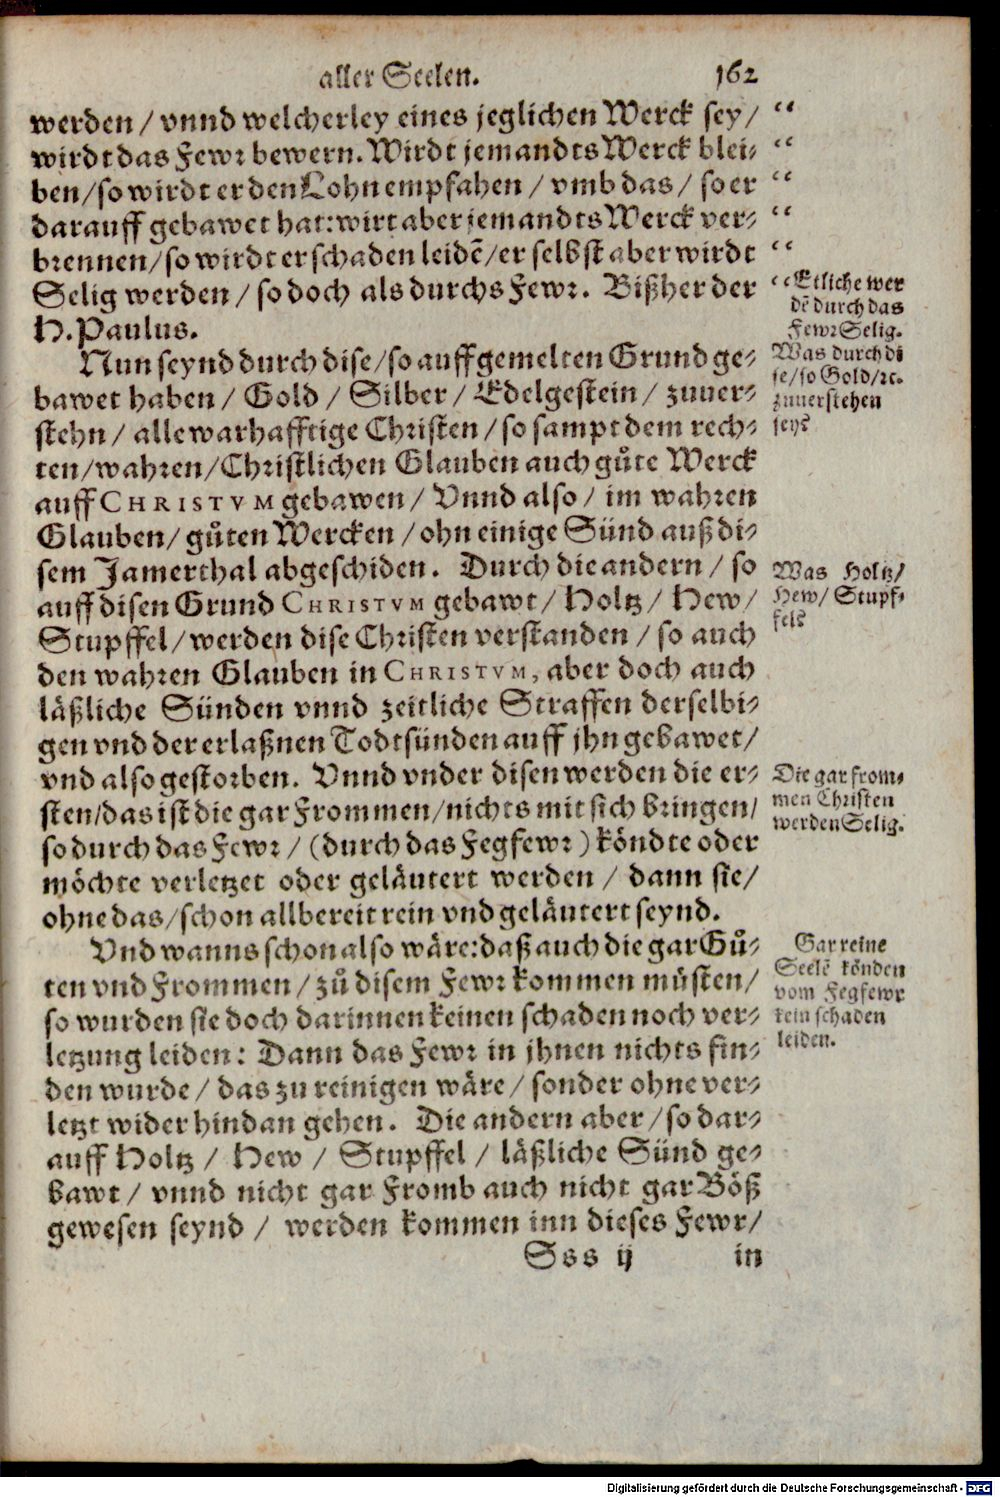 aller Seelen. 162
werden / vnnd welcherley eines jeglichen Werck sey / “
wirdt das Fewr bewern. Wirdt jemandts Werck blei- “
ben / so wirdt er den Lohn empfahen / vmb das / so er “
darauff gebawet hat: wirt aber jemandts Werck ver- “
brennen / so wirdt er schaden leidē / er selbst aber wirdt “
Selig werden / so doch als durchs Fewr. Bißher der “
H. Paulus.
Etliche wer
dē durch das
Fewr Selig.
Nun seynd durch dise / so auff gemelten Grund ge-
bawet haben / Gold / Silber / Edelgestein / zuuer-
stehn / alle warhafftige Christen / so sampt dem rech-
ten / wahren / Christlichen Glauben auch gůte Werck
auff CHRISTVM gebawen / Vnnd also / im wahren
Glauben / gůten Wercken / ohn einige Sünd auß di-
sem Jamerthal abgeschiden. Durch die andern / so
auff disen Grund CHRISTVM gebawt / Holtz / Hew /
Stupffel / werden dise Christen verstanden / so auch
den wahren Glauben in CHRISTVM, aber doch auch
läßliche Sünden vnnd zeitliche Straffen derselbi-
gen vnd der erlaßnen Todtsünden auff jhn gebawet /
vnd also gestorben. Vnnd vnder disen werden die er-
sten / das ist die gar Frommen / nichts mit sich bringen /
so durch das Fewr / (durch das Fegfewr) köndte oder
möchte verletzet oder geläutert werden / dann sie /
ohne das / schon allbereit rein vnd geläutert seynd.
Was durch di
se / so Gold / ꝛc.
zuuerstehen
seye
Was Holtz /
Hew / Stupf-
fel?
Die gar from-
men Christen
werden Selig.
Vnd wanns schon also wäre: daß auch die gar Gů-
ten vnd Frommen / zů disem Fewr kommen müsten /
so wurden sie doch darinnen keinen schaden noch ver-
letzung leiden: Dann das Fewr in jhnen nichts fin-
den wurde / das zu reinigen wäre / sonder ohne ver-
letzt wider hindan gehen. Die andern aber / so dar-
auff Holtz / Hew / Stupffel / läßliche Sünd ge-
bawt / vnnd nicht gar Fromb auch nicht gar Böß
gewesen seynd / werden kommen inn dieses Fewr /
Gar reine
Seelē könden
vom Fegfewr
kein schaden
leiden.
Sss ij in
Digitalisierung gefördert durch die Deutsche Forschungsgemeinschaft - DFG